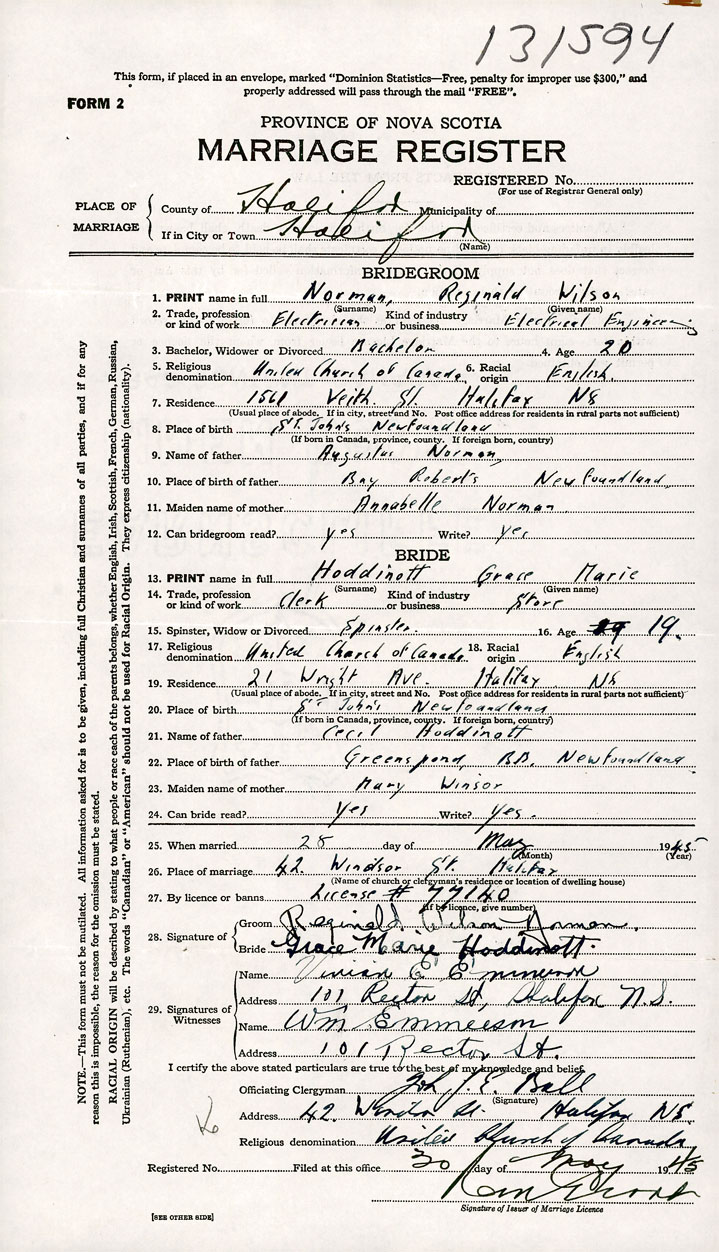 131594
This form, if placed in an envelope, marked "Dominion Statistics—Free, penalty for improper use $300," and
properly addressed will pass through the mail "FREE".
FORM 2
PROVINCE OF NOVA SCOTIA
MARRIAGE REGISTER
REGISTERED No.
(For use of Registrar General only)
PLACE OF MARRIAGE
County of Halifax Municipality of
If in City or Town Halifax
(Name)
BRIDEGROOM
1. PRINT name in full Norman, Reginald Wilson
(Surname) (Given name)
2. Trade, profession or kind of work Electrician Kind of industry or business Electrical Engineering
3. Bachelor, Widower or Divorced Bachelor 4. Age 20
5. Religious denomination United Church of Canada 6. Racial origin English.
7. Residence 1561 Veith St. Halifax NS
(Usual place of abode. If in city, street and No. Post office address for residents in rural parts not sufficient)
8. Place of birth St. John's Newfoundland
(If born in Canada, province, county. If foreign born, country)
9. Name of father Augustus Norman
10. Place of birth of father Bay Roberts Newfoundland
11. Maiden name of mother Annabelle Norman
12. Can bridegroom read? yes Write? yes
BRIDE
13. PRINT name in full Hoddinott Grace Marie
(Surname) (Given name)
14. Trade, profession or kind of work Clerk Kind of industry or business Store
15. Spinster, Widow or Divorced Spinster. 16. Age 19.
17. Religious denomination United Church of Canada 18. Racial origin English
19. Residence 21 Wright Ave. Halifax NS
(Usual place of abode. If in city, street and No. Post office address for residents in rural parts not sufficient)
20. Place of birth St John's Newfoundland
(If born in Canada, province, county. If foreign born, country)
21. Name of father Cecil Hoddinott
22. Place of birth of father Greenspond, B.B. Newfoundland
23. Maiden name of mother Mary Winsor
24. Can bride read? Yes Write? Yes.
25. When married 28 day of May 1945
(Month) (Year)
26. Place of marriage 42. Windsor St. Halifax
(Name of church or clergyman's residence or location of dwelling house)
27. By licence or banns License # 77140
(If by licence, give number)
28. Signature of
Groom Reginald Wilson Norman.
Bride Grace Marie Hoddinott.
29. Signatures of Witnesses
Name Vivian E Emmerson
Address 101 Rector St, Halifax N.S.
Name Wm Emmerson
Address 101 Rector St.
I certify the above stated particulars are true to the best of my knowledge and belief.
Officiating Clergyman J. E. Ball
(Signature)
Address 42. Windsor St. Halifax NS.
Religious denomination United Church of Canada
Registered No. Filed at this office 30 day of May 1945
Signature of Issuer of Marriage Licence
[SEE OTHER SIDE]
NOTE.—This form must not be mutilated. All information asked for is to be given, including full Christian and surnames of all parties, and if for any
reason this is impossible, the reason for the omission must be stated.
RACIAL ORIGIN will be described by stating to what people or race each of the parents belongs, whether English, Irish, Scottish, French, German, Russian,
Ukrainian (Ruthenian), etc. The words "Canadian" or "American" should not be used for Racial Origin. They express citizenship (nationality).